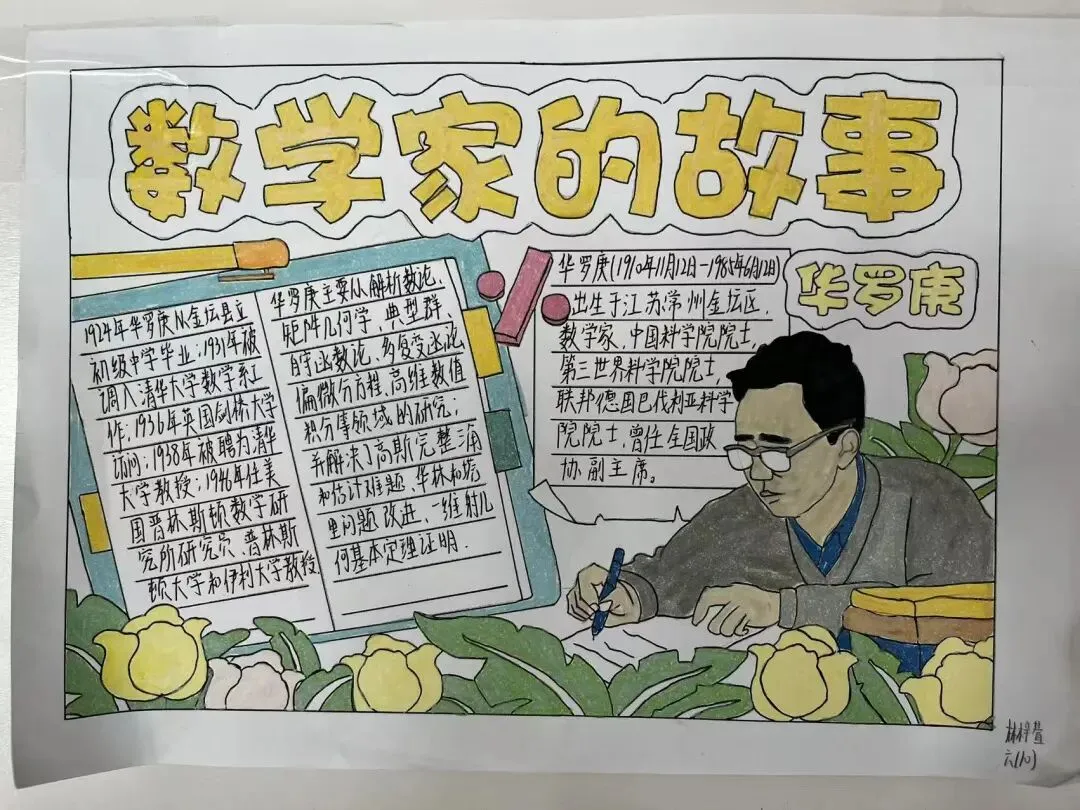 数学家的故事
华罗庚
华罗庚(1910年11月12日-1985年6月12日)
出生于江苏常州金坛区,
数学家,中国科学院院士,
第三世界科学院院士,
联邦德国巴伐利亚科学
院院士,曾任全国政
协副主席。
1924年华罗庚从金坛县立
初级中学毕业;1931年被
调入清华大学数学系工
作;1936年英国剑桥大学
访问;1938年被聘为清华
大学教授;1946年任美
国普林斯顿数学研
究所研究员、普林斯
顿大学和伊利大学教授
华罗庚主要从解析数论,
矩阵几何学,典型群,
自守函数论、多复变函论
偏微分方程、高维数值
积分等领域的研究;
并解决了高斯完整三角
和估计难题、华林和塔
里问题改进、一维射几
何基本定理证明.
六(10)